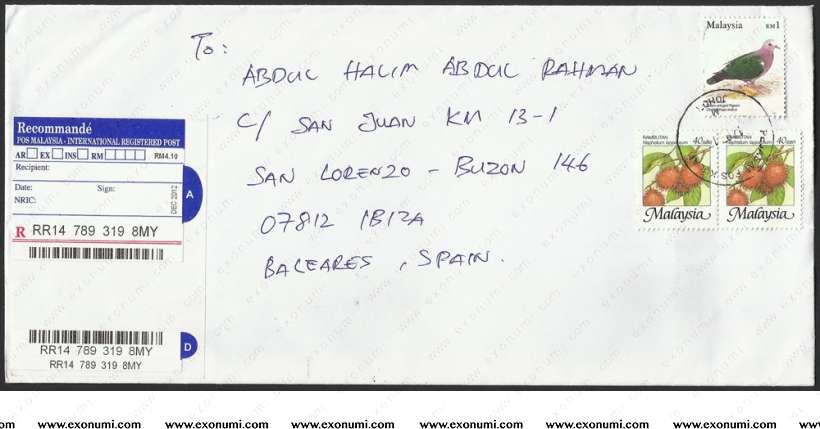 To:
ABDUL HALIM ABDUL RAHMAN
C/ SAN JUAN KM 13-1
SAN LORENZO - BUZON 146
07812 IBIZA
BALEARES, SPAIN.
Malaysia RM1
RAMBUTAN 40 sen
Nephelium lappaceum
Malaysia
RAMBUTAN 40 sen
Nephelium lappaceum
Malaysia
Recommandé
POS MALAYSIA - INTERNATIONAL REGISTERED POST
AR EX INS RM RM4.10
Recipient:
Date: Sign:
NRIC:
DEC 2012
A
R RR14 789 319 8MY
RR14 789 319 8MY
D
RR14 789 319 8MY
www.exonumi.com www.exonumi.com www.exonumi.com www.exonumi.com www.exonumi.com